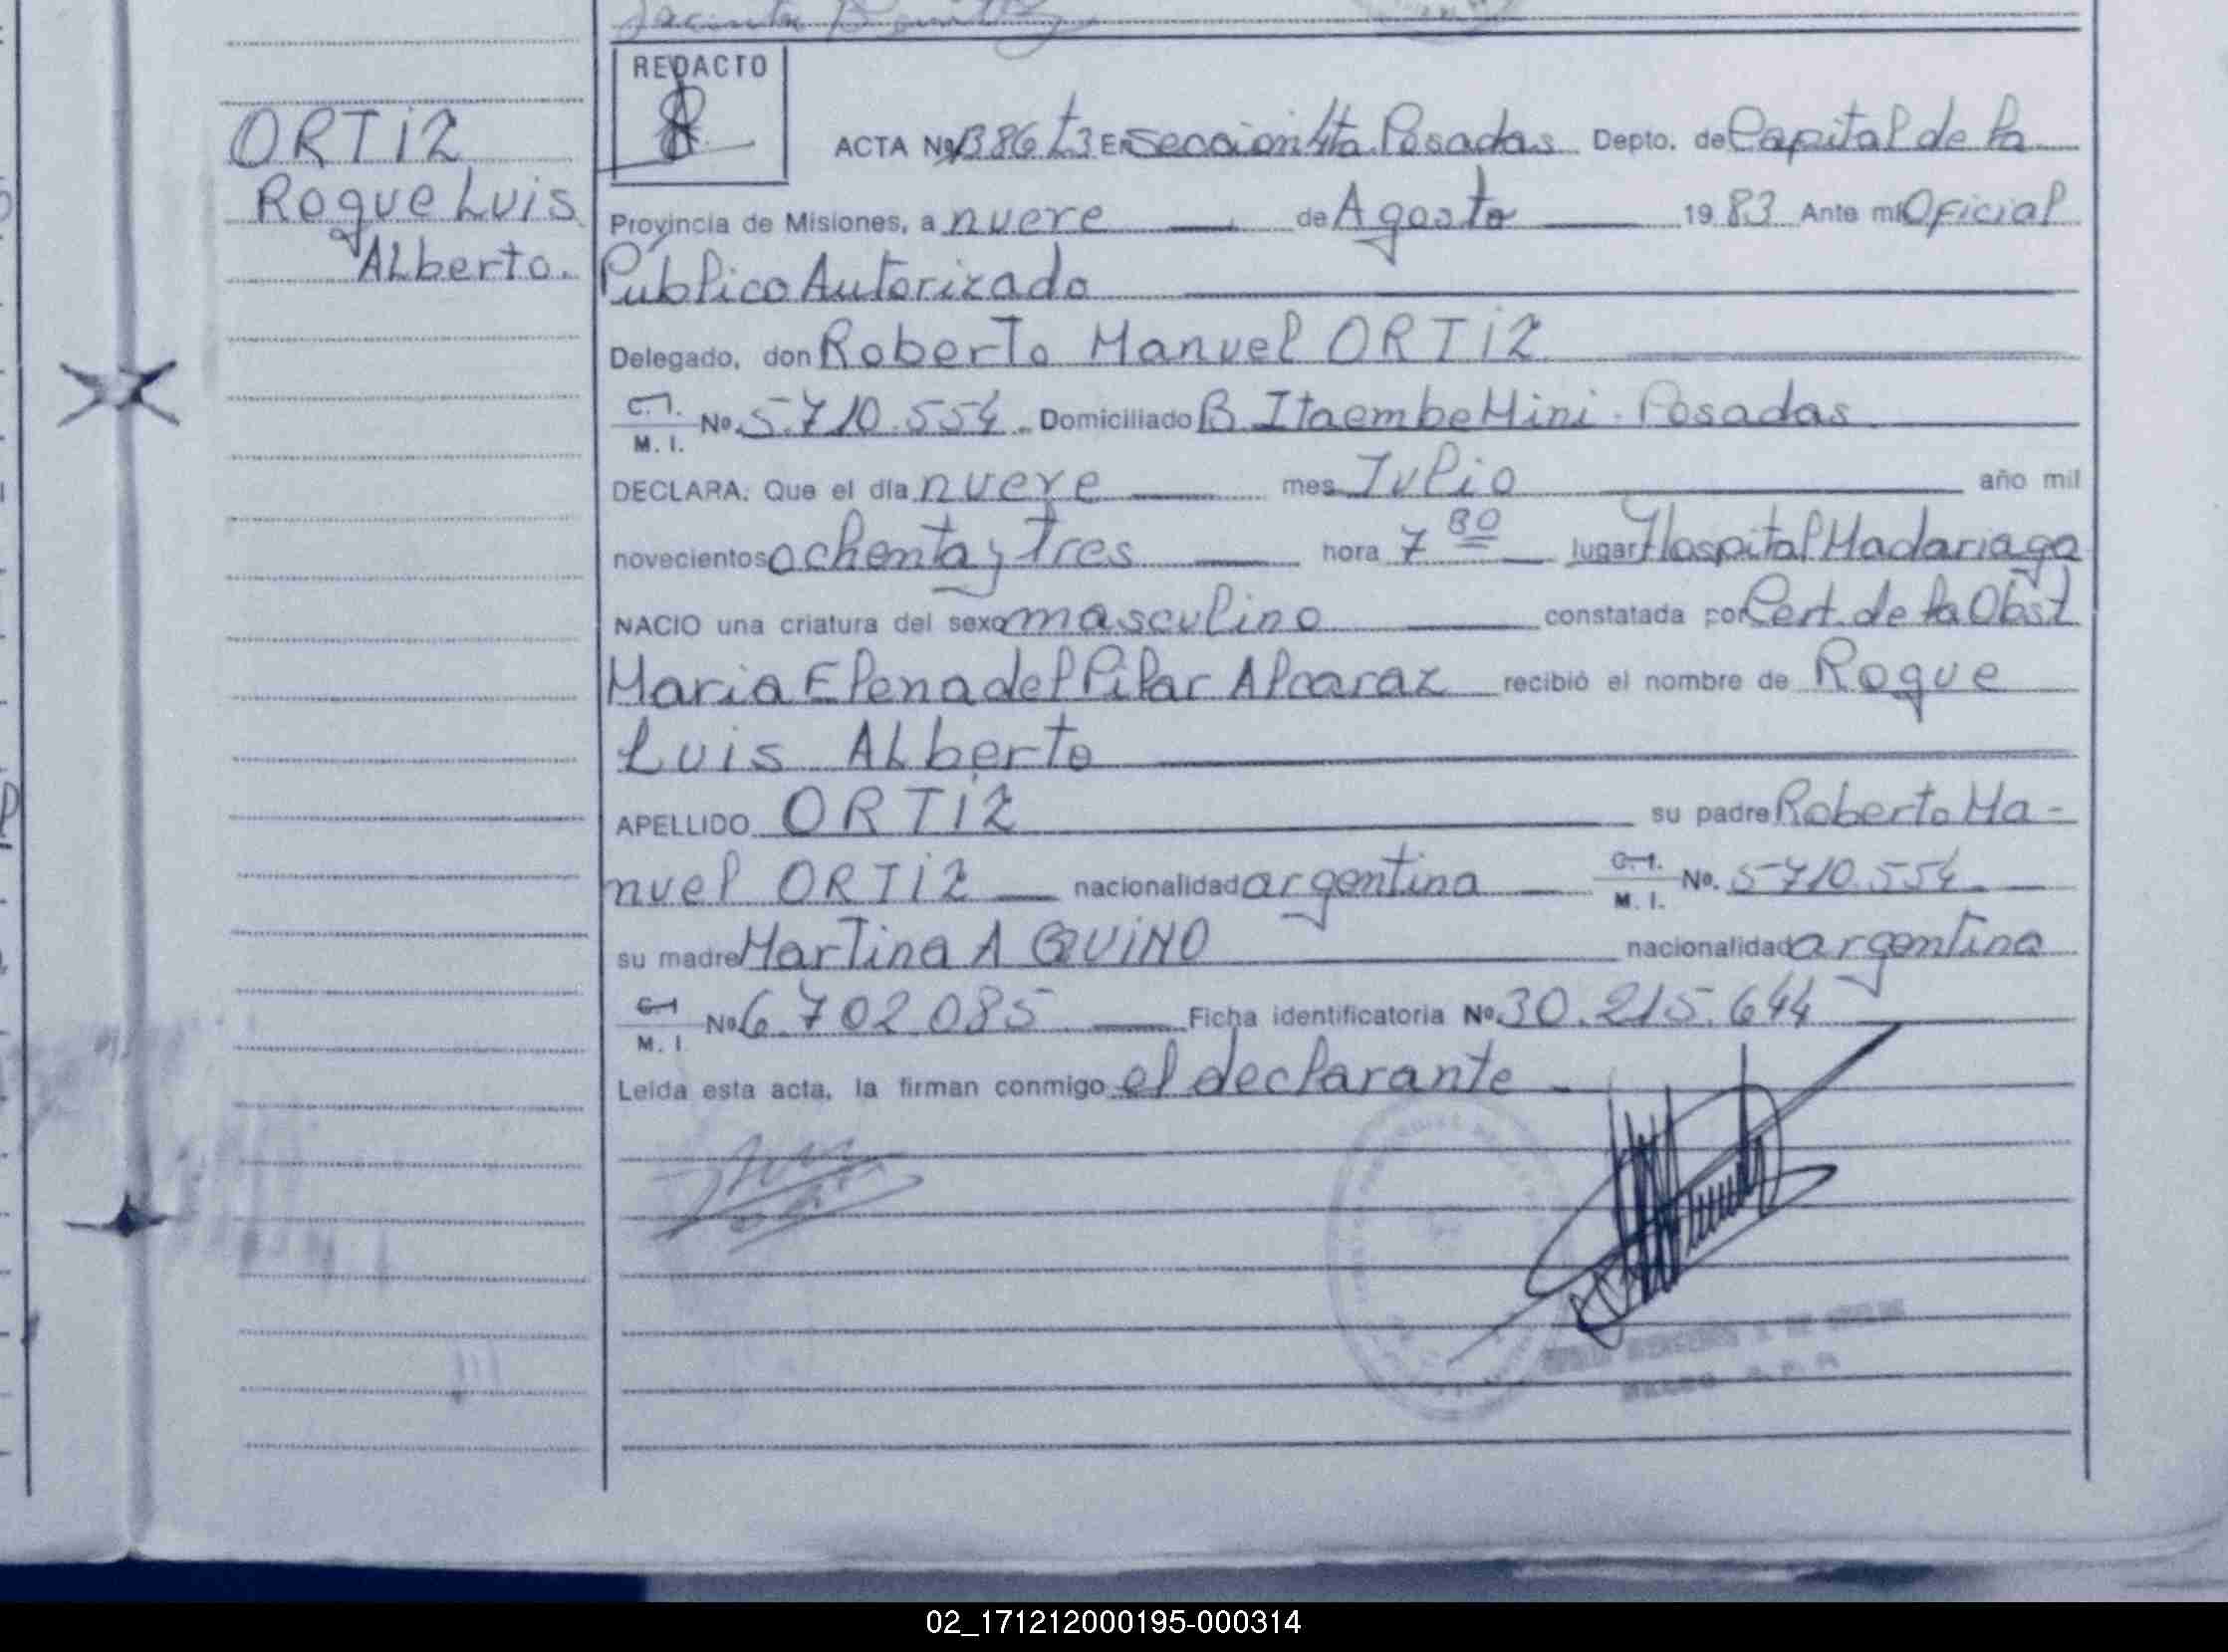 ORTIZ
Roque Luis
Alberto.
REDACTO
ACTA No 1386 t3 En seccion 4ta. Posadas Depto. de Capital de la
Provincia de Misiones, a nueve de Agosto 1983 Ante mi Oficial
Publico Autorizado
Delegado, don Roberto Manuel ORTIZ
C.I. M.I. No. 5.710.554. Domiciliado B. Itaembe Mini - Posadas
DECLARA: Que el día nueve mes Julio año mil
novecientos ochenta y tres hora 7 30 lugar Hospital Madariaga
NACIO una criatura del sexo masculino constatada por Cert. de la Obst
Maria Elena del Pilar Alcaraz recibió el nombre de Roque
Luis Alberto
APELLIDO ORTIZ su padre Roberto Ma-
nuel ORTIZ nacionalidad argentina C.I. M.I. No. 5710.554.
su madre Martina AQUINO nacionalidad argentina
C.I. M.I. No 6.702.085 Ficha identificatoria No. 30.215.644
Leída esta acta, la firman conmigo el declarante
02_171212000195-000314